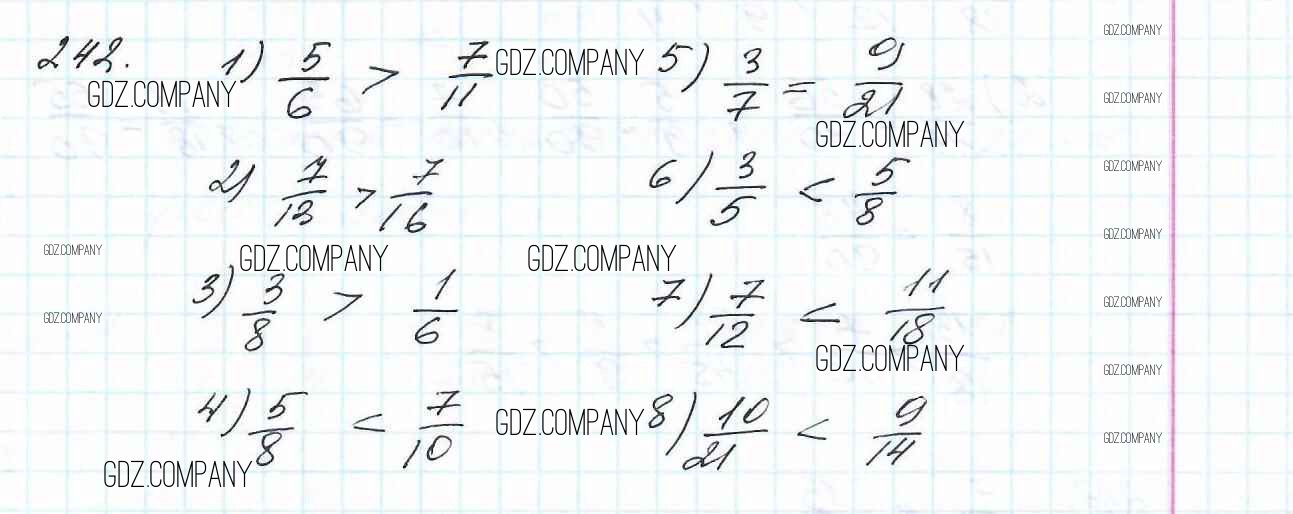 242. 1) 5/6 > 7/11 5) 3/7 = 9/21
GDZ.COMPANY GDZ.COMPANY GDZ.COMPANY
2) 7/13 > 7/16 6) 3/5 < 5/8
GDZ.COMPANY GDZ.COMPANY
3) 3/8 > 1/6 7) 7/12 < 11/18
GDZ.COMPANY
4) 5/8 < 7/10 8) 10/21 < 9/14
GDZ.COMPANY GDZ.COMPANY
GDZ.COMPANY
GDZ.COMPANY
GDZ.COMPANY
GDZ.COMPANY
GDZ.COMPANY
GDZ.COMPANY
GDZ.COMPANY
GDZ.COMPANY
GDZ.COMPANY